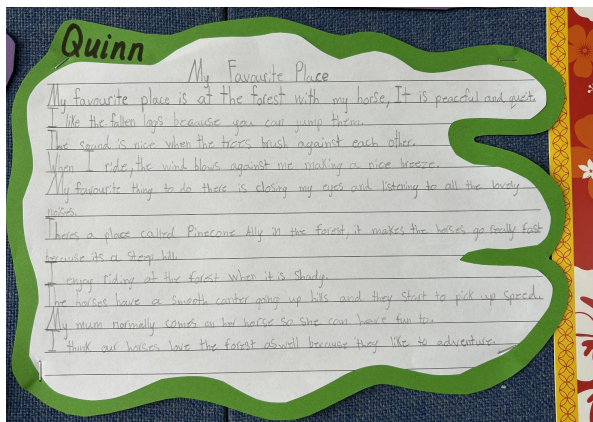 Quinn
My Favourite Place
My favourite place is at the forest with my horse, It is peaceful and quiet.
I like the fallen logs because you can jump them.
The sound is nice when the trees brush against each other.
When I ride, the wind blows against me making a nice breeze.
My favourite thing to do there is closing my eyes and listening to all the lovely
noises.
Theres a place called Pinecone Ally in the forest, it makes the horses go really fast
because its a steep hill.
I enjoy riding at the forest when it is shady.
The horses have a smooth canter going up hills and they start to pick up speed.
My mum normally comes on her horse so she can have fun to.
I think our horses love the forest aswell because they like to adventure.